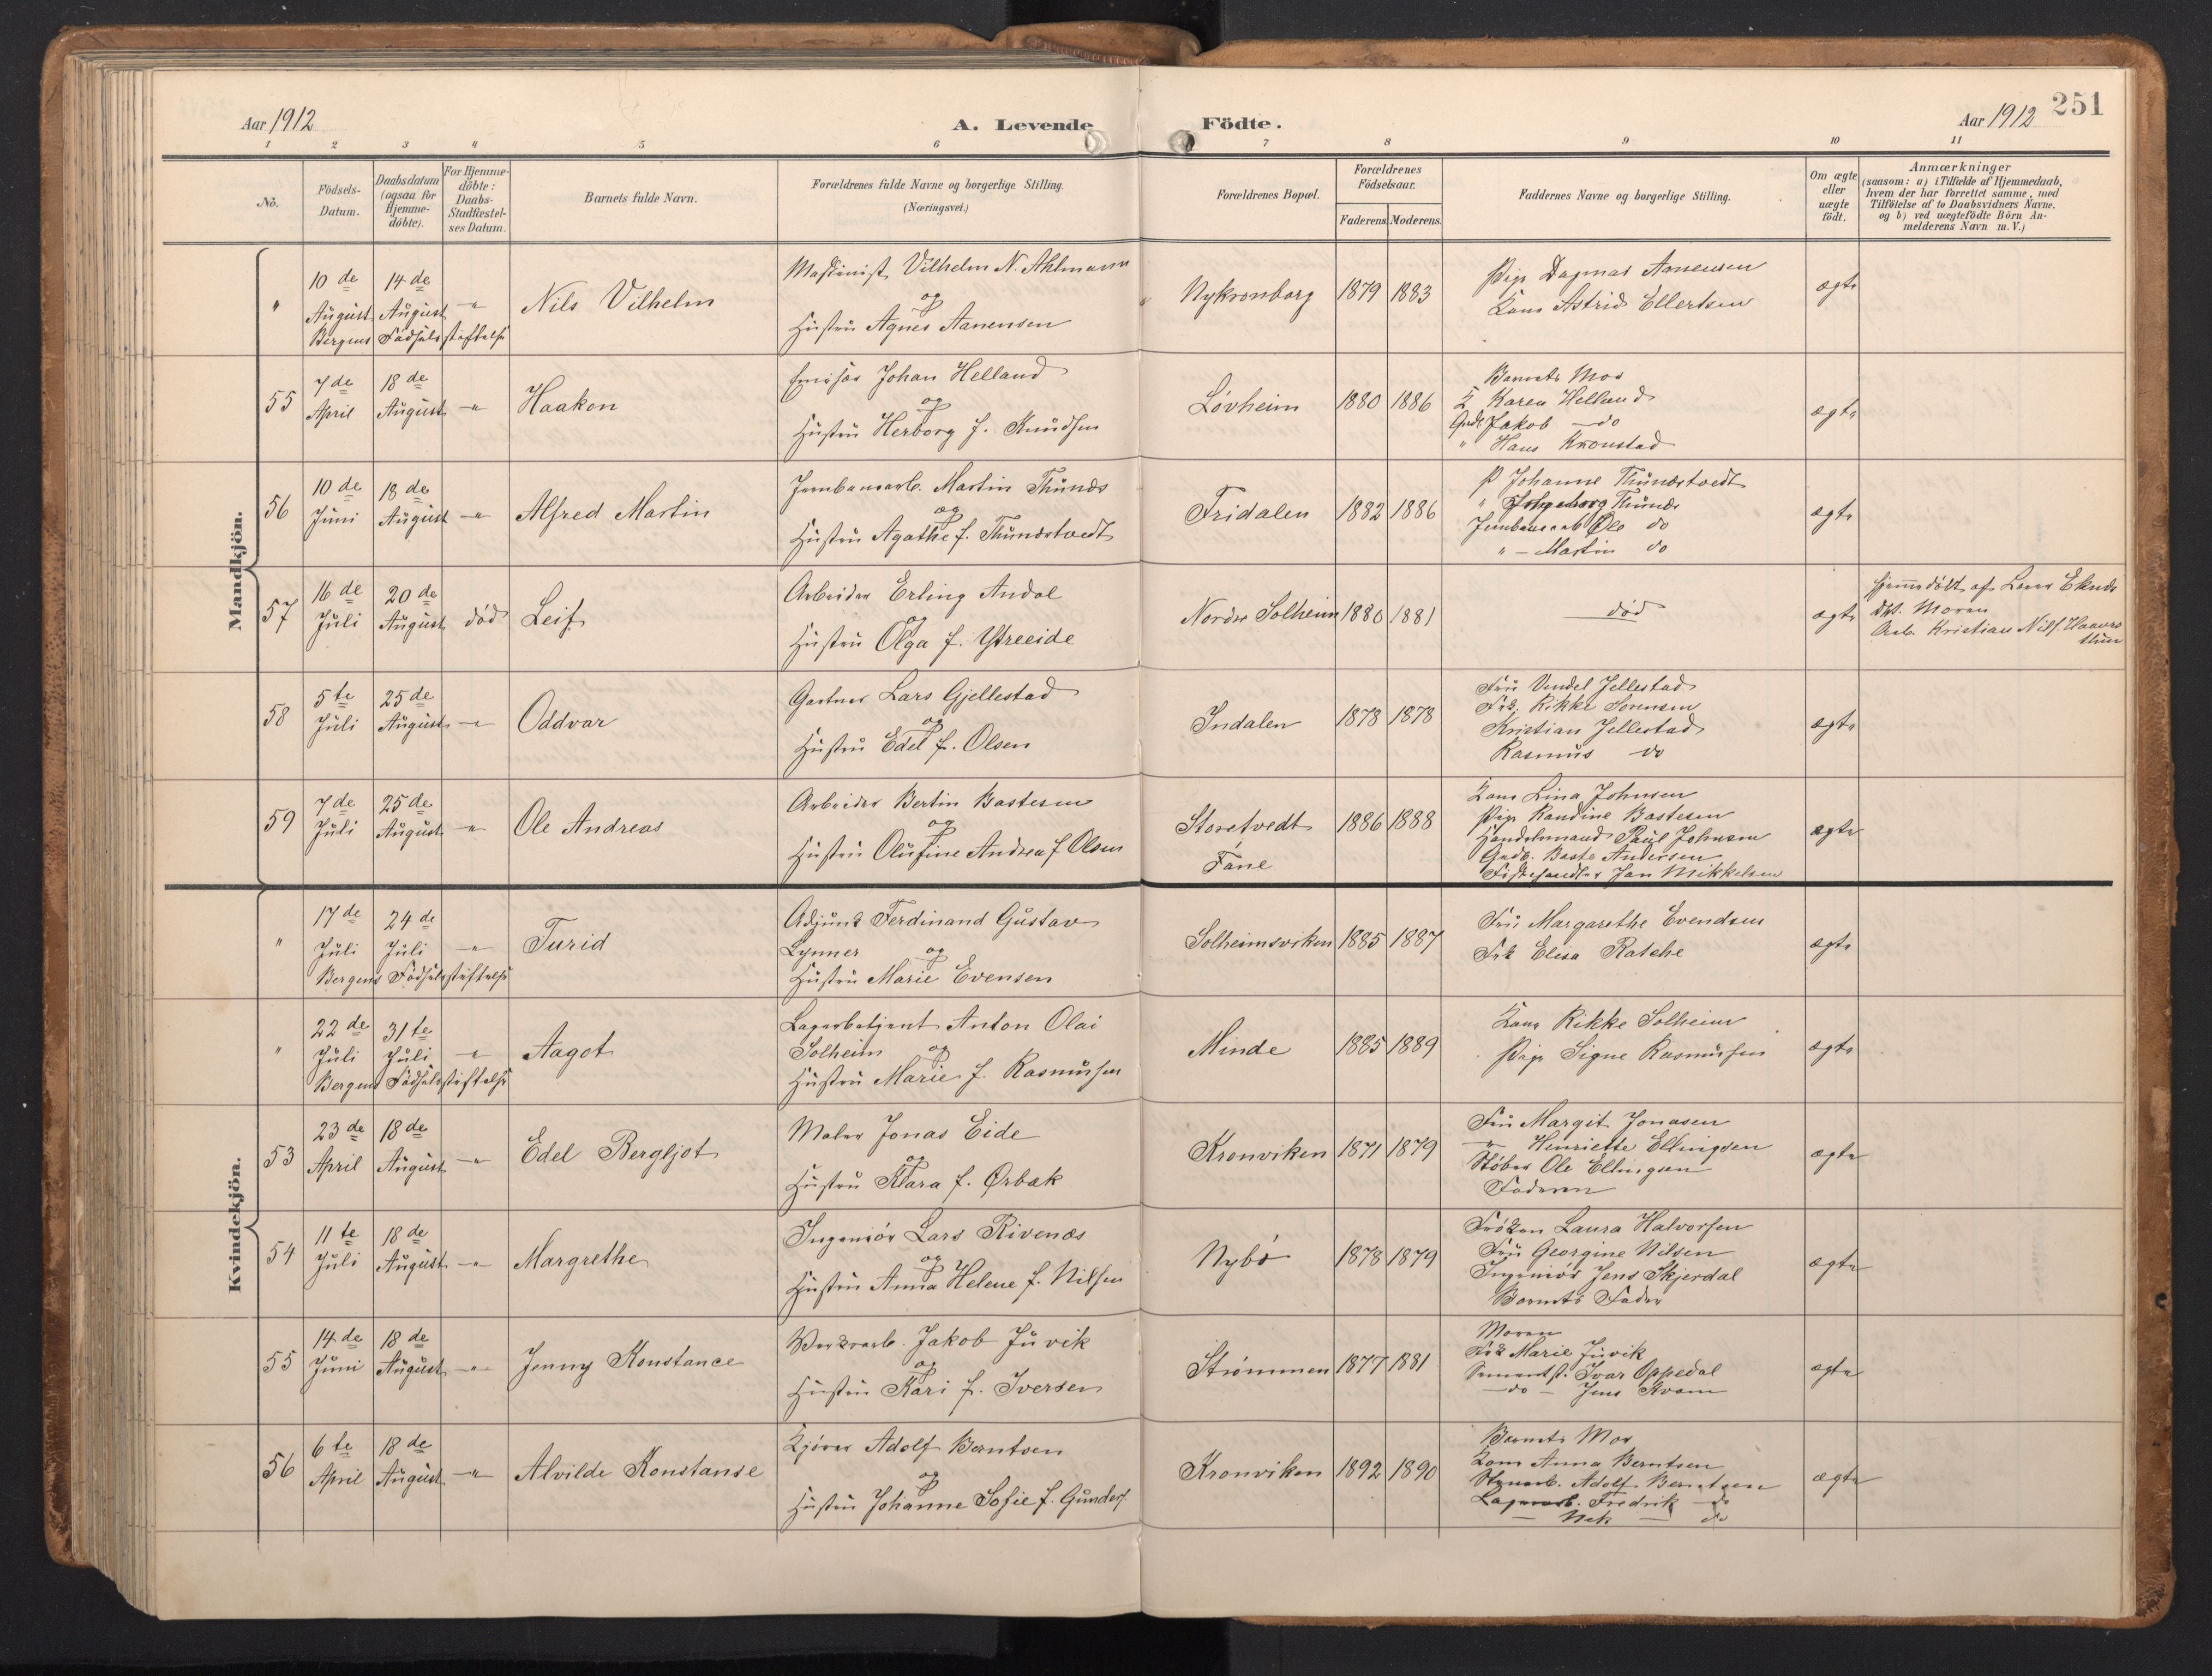 251
Aar 1912
A. Levende Födte.
Aar 1912
1 2 3 4 5 6 7 8 9 10 11
No.
Födsels-Datum.
Daabsdatum (ogsaa for Hjemme-döbte).
For Hjemme-döbte: Daabs-Stadfæstel-ses Datum.
Barnets fulde Navn.
Forældrenes fulde Navne og borgerlige Stilling.
(Næringsvei.)
Forældrenes Bopæl.
Forældrenes Födselsaar.
Faderens. Moderens.
Faddernes Navne og borgerlige Stilling.
Om ægte eller uægte födt.
Anmærkninger
(saasom: a) i Tilfælde af Hjemmedaab,
hvem der har forrettet samme, med
Tilföielse af to Daabsvidners Navne,
og b) ved uægtefödte Börn An-
melderens Navn m. V.)
Mandkjön.
" 10de August 14de August " Nils Vilhelm
Bergens Fødselsstiftelse
Maskinist Vilhelm N. Ahlmann
og
Hustru Agnes Aanensen
Nykronborg 1879 1883
Pige Dagmar Aanensen
Kone Astrid Ellertsen
ægte
55 7de April 18de August " Haakon
Emisær Johan Helland
og
Hustru Herborg f. Knudsen
Løvheim 1880 1886
Barnets Mor
K Karen Helland
Gadb. Jakob do
" Hans Kronstad
ægte
56 10de Juni 18de August " Alfred Martin
Jernbanearb. Martin Thunes
og
Hustru Agathe f. Thunestvedt
Fridalen 1882 1886
P Johanne Thunestvedt
" Ingeborg Thunes
Jernbanearb Ole do
" – Martin do
ægte
57 16de Juli 20de August død Leif
Arbeider Erling Andal
og
Hustru Olga f. Ytreeide
Nordre Solheim 1880 1881
død
ægte
Hjemmedøbt af Lærer Eknes
Dbv. Moren
Arb. Kristian Nils
58 5te Juli 25de August " Oddvar
Gartner Lars Gjellestad
og
Hustru Edel f. Olsen
Indalen 1878 1878
Fru Vendel Jellestad
Frk. Rikke Sørensen
Kristian Jellestad
Rasmus do
ægte
59 7de Juli 25de August " Ole Andreas
Arbeider Bertin Bastesen
og
Hustru Olufine Andrea f Olsen
Storetvedt 1886 1888
Fane
Kone Lina Johnsen
Pige Randine Bastesen
Handelsmand Paul Johnsen
Gadb. Baste Andersen
Fiskehandler Jan Mikkelsen
ægte
Kvindekjön.
" 17de Juli 24de Juli " Turid
Bergens Fødselsstiftelse
Adjunkt Ferdinand Gustav
Lynner og
Hustru Marie Evensen
Solheimsviken 1885 1887
Fru Margarethe Evendsen
Frk Elisa Ratche
ægte
" 22de Juli 31te Juli " Aagot
Bergens Fødselsstiftelse
Lagerbetjent Anton Olai
Solheim og
Hustru Marie f. Rasmussen
Minde 1885 1889
Kone Rikke Solheim
Pige Signe Rasmussen
ægte
53 23de April 18de August " Edel Bergljot
Maler Jonas Eide
og
Hustru Klara f. Ørbæk
Kronviken 1871 1879
Fru Margit Jonasen
" Henriette Ellingsen
Støber Ole Ellingsen
Faderen
ægte
54 11te Juli 18de August " Margrethe
Ingeniør Lars Rivenæs
og
Hustru Anna Helene f. Nilsen
Nybø 1878 1879
Frøken Laura Halvorsen
Fru Georgine Nilsen
Ingeniør Jens Skjerdal
Barnets Fader
ægte
55 14de Juni 18de August " Jenny Konstance
Verksarb. Jakob Juvik
og
Hustru Kari f. Iversen
Strømmen 1877 1881
Moren
Frk Marie Juvik
Sementst. Ivar Oppedal
– do – Jens Kvam
ægte
56 6te April 18de August " Alvilde Konstanse
Kjører Adolf Berntsen
og
Hustru Johanne Sofie f. Gunders.
Kronviken 1892 1890
Barnets Mor
Kone Anna Berntsen
Adolf Berntsen
Lagerarb. Fredrik do
– Nek – do
ægte